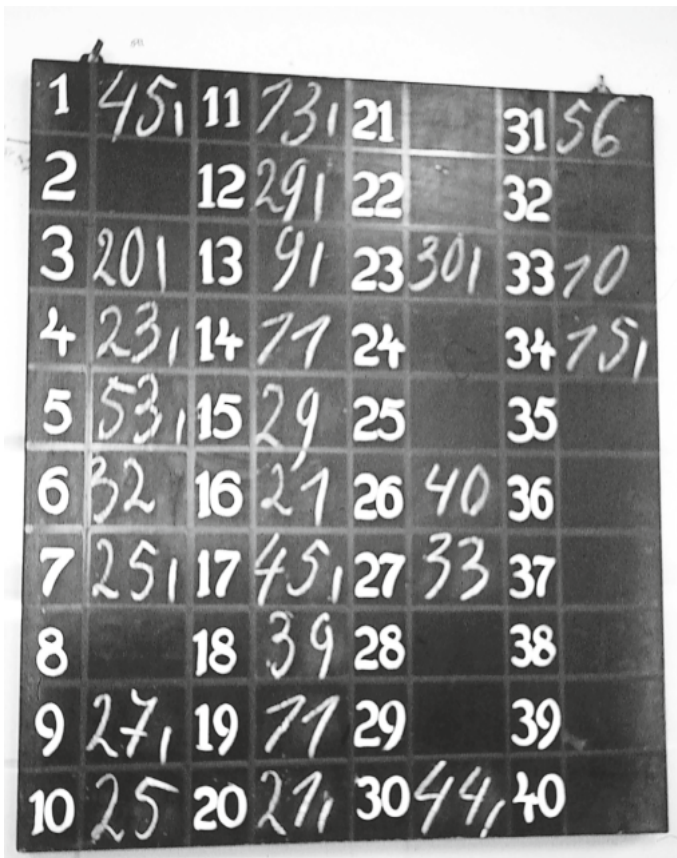 1 45, 11 73, 21 31 56
2 12 29, 22 32
3 20, 13 9, 23 30, 33 10
4 23, 14 11 24 34 15,
5 53, 15 29 25 35
6 32 16 21 26 40 36
7 25, 17 45, 27 33 37
8 18 39 28 38
9 27, 19 11 29 39
10 25 20 21, 30 44, 40